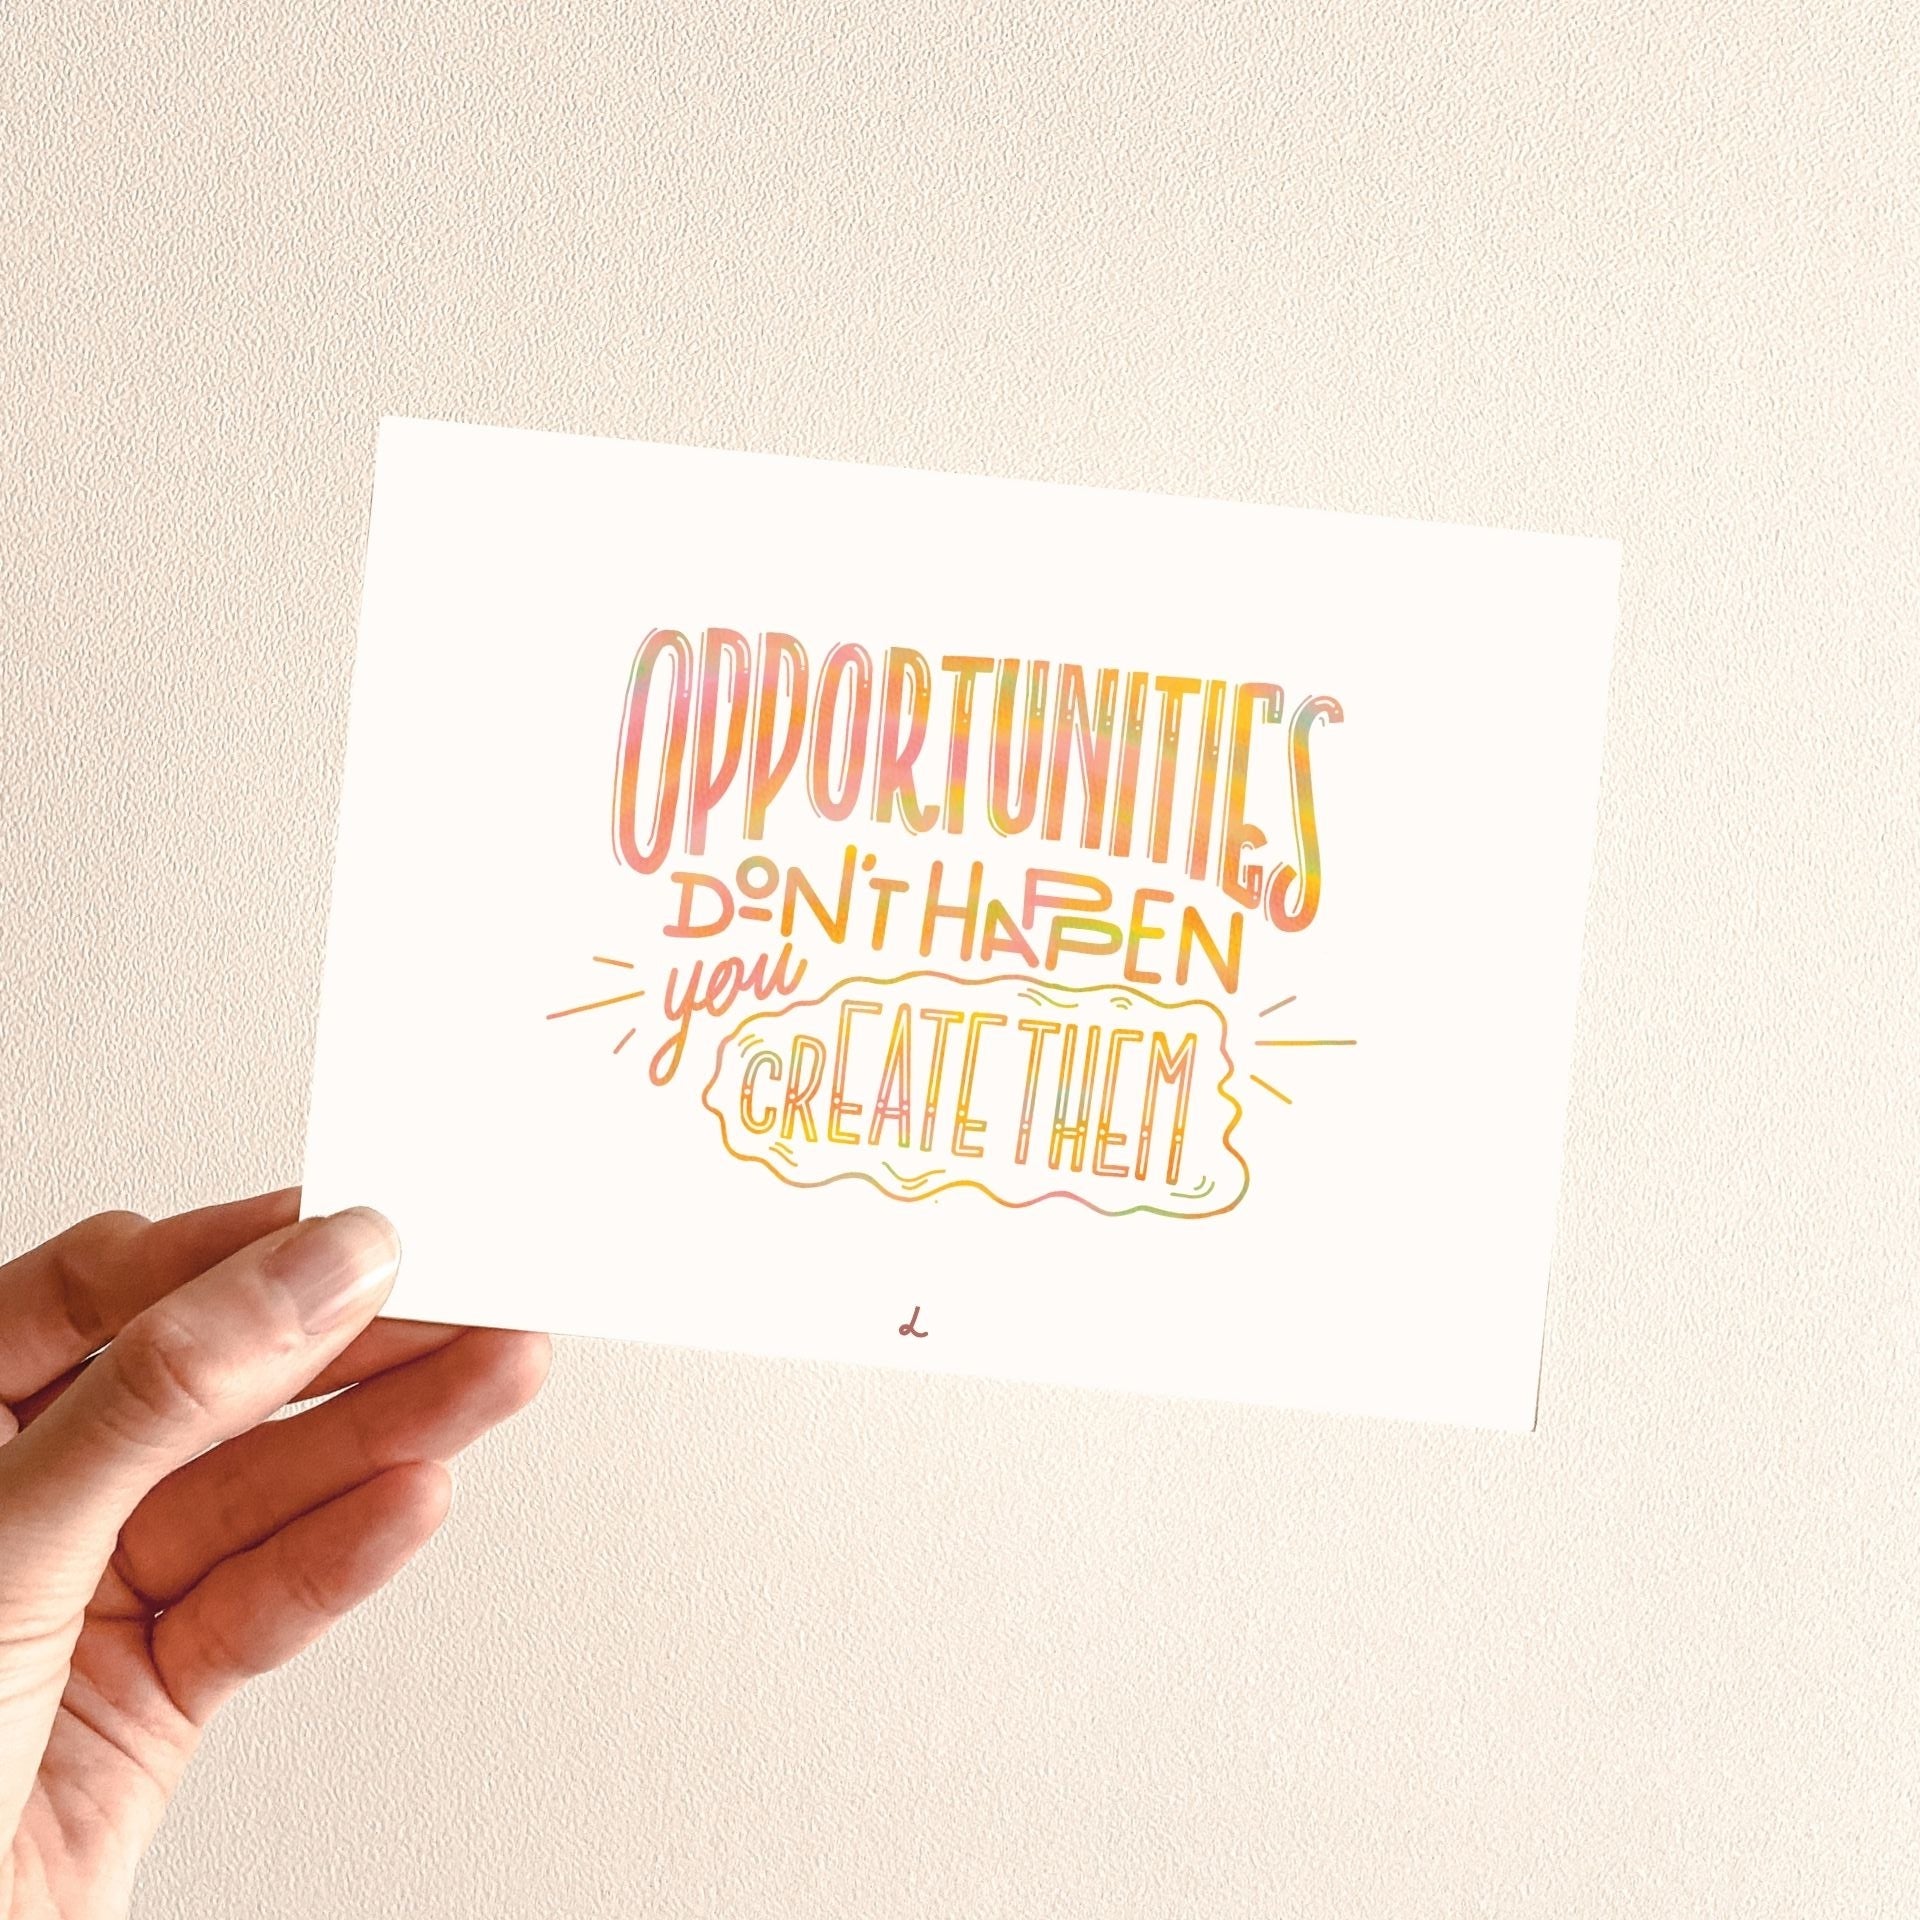 OPPORTUNITIES
DON'T HAPPEN
you
CREATE THEM
L